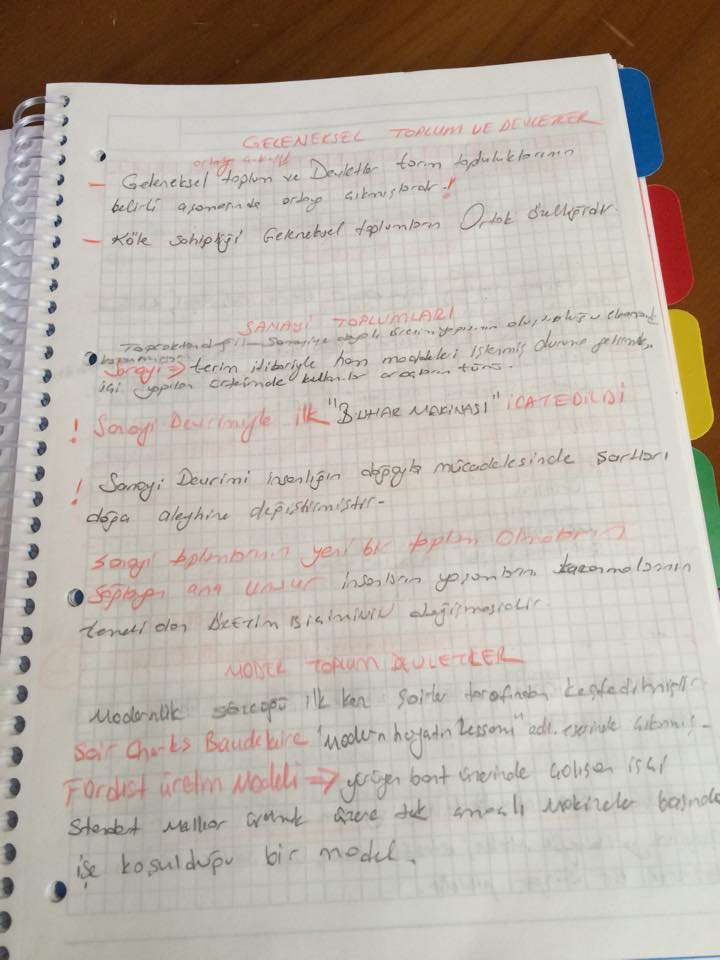 GELENEKSEL TOPLUM VE DEVLETLER
ortaya çıkışı
– Geleneksel toplum ve Devletler tarım topluluklarının
belirli aşamasında ortaya çıkmışlardır!
– Köle sahipliği Geleneksel toplumların Ortak özelliğidir.
SANAYİ TOPLUMLARI
Topraktan değil – Sanayiye dayalı üretim yapısının oluşturduğu
Sanayi → terim itibariyle ham maddeleri işlenmiş duruma getirmek,
işi yapılan kullanılan araçların tümü.
! Sanayi Devrimiyle ilk "BUHAR MAKİNASI" İCAT EDİLDİ
! Sanayi Devrimi insanlığın doğayla mücadelesinde şartları
doğa aleyhine değiştirmiştir-
Sanayi toplumlarının yeni bir toplum Olmalarını
Sağlayan ana Unsur insanların yaşamlarını kazanmalarının
temeli olan ÜRETİM BİÇİMİNİN değişmesidir.
MODEL TOPLUM DEVLETLER
Modernlik sözcüğü ilk kez şairler tarafından keşfedilmiştir
Şair Charles Baudelaire "Modern hayatın Ressamı" adlı eserinde çıkarmış-
Fordist üretim Modeli → yürüyen bant üzerinde çalışan işçi
Standart Mallar üretmek üzere tek amaçlı Makineler başında
işe koşulduğu bir model.